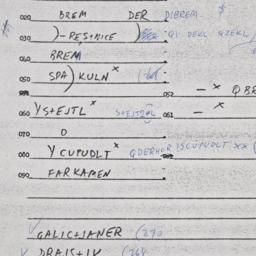 020 BREM DER DIBREM $
030 )-RESNICE QI DEKL QZEKL
040 BREM
050 SPA)KULN x
052 - x QB
060 YS+EJTL x S+EJTZQL
061 - x
070 O
080 YCUPUDLT x QDERHOR ISCUPUDLT xx (
090 FARKAMEN
GALIC+JANER (270
DRAJS+IV (268